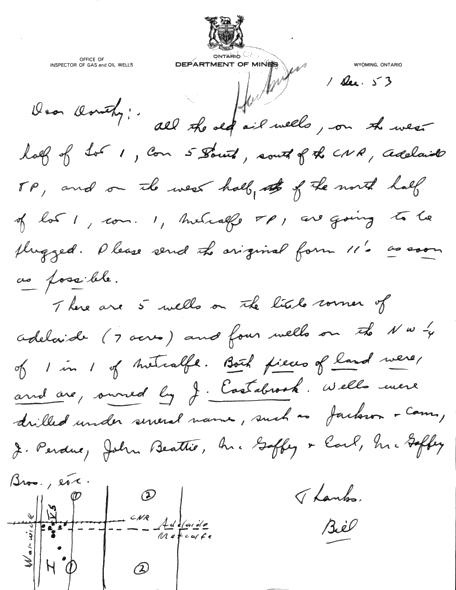 ONTARIO
OFFICE OF
INSPECTOR OF GAS and OIL WELLS
DEPARTMENT OF MINES
WYOMING, ONTARIO
1 Dec. 53
Dear Dorothy:.
All the old oil wells, on the west
half of Lot 1, Con 5 South, south of the CNR, Adelaide
TP, and on the west half, of the north half
of lot 1, con. 1, Metcalfe TP, are going to be
plugged. Please send the original form 11's as soon
as possible.
There are 5 wells on the little corner of
Adelaide (7 acres) and four wells on the NW ¼
of 1 in 1 of Metcalfe. Both pieces of land were,
and are, owned by J. Eastabrook. Wells were
drilled under several names, such as Jackson + Cann,
J. Perdue, John Beattie, Mc Gaffey + Carl, Mc Gaffey
Bros., etc.
Thanks.
Bill
Warwick
V S
1
2
CNR
Adelaide
Metcalfe
I
1
2